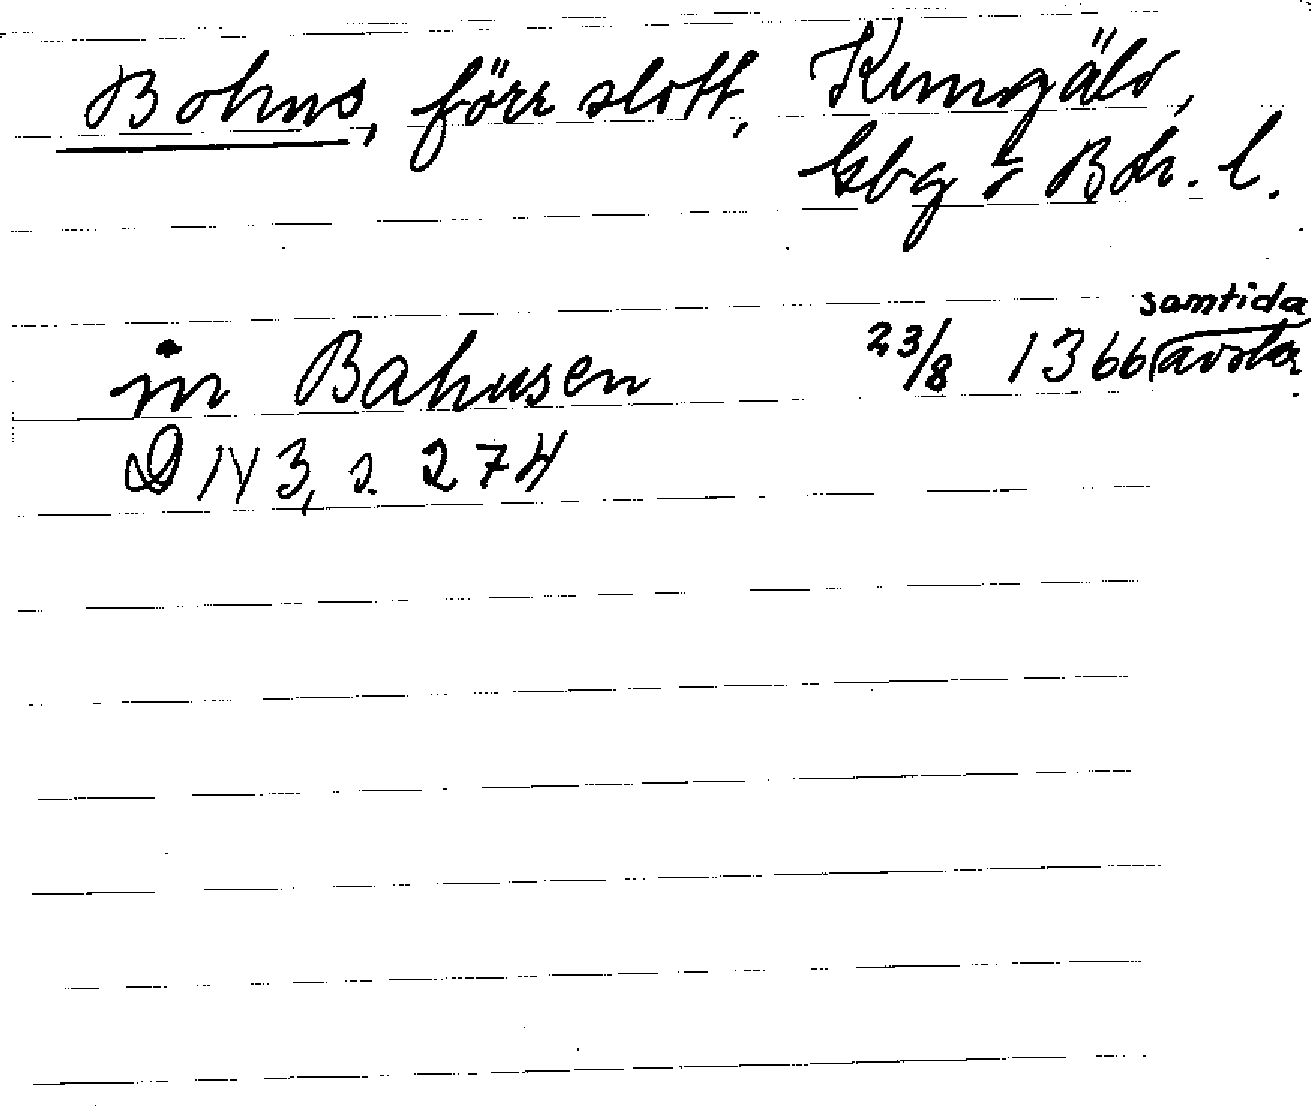 Bohus, förr slott, Kungälv,
Gbg o Boh. l.
in Bahusen 23/8 1366 (samtida avskr
D 143, s. 274